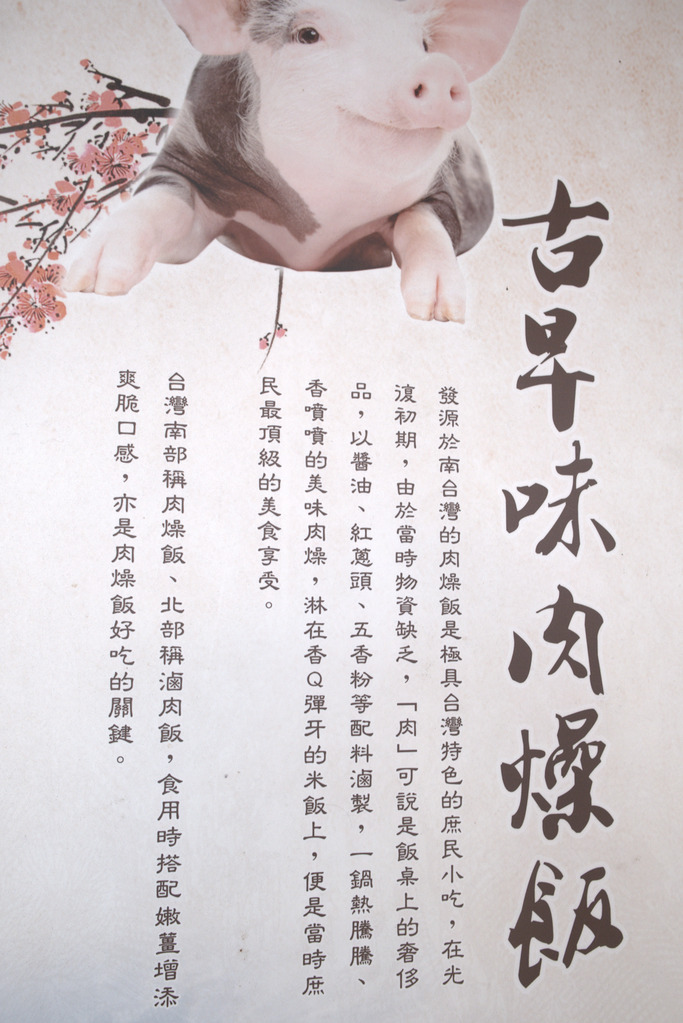 古早味肉燥飯
發源於南台灣的肉燥飯是極具台灣特色的庶民小吃，在光
復初期，由於當時物資缺乏，「肉」可說是飯桌上的奢侈
品，以醬油、紅蔥頭、五香粉等配料滷製，一鍋熱騰騰、
香噴噴的美味肉燥，淋在香Q彈牙的米飯上，便是當時庶
民最頂級的美食享受。
台灣南部稱肉燥飯、北部稱滷肉飯，食用時搭配嫩薑增添
爽脆口感，亦是肉燥飯好吃的關鍵。